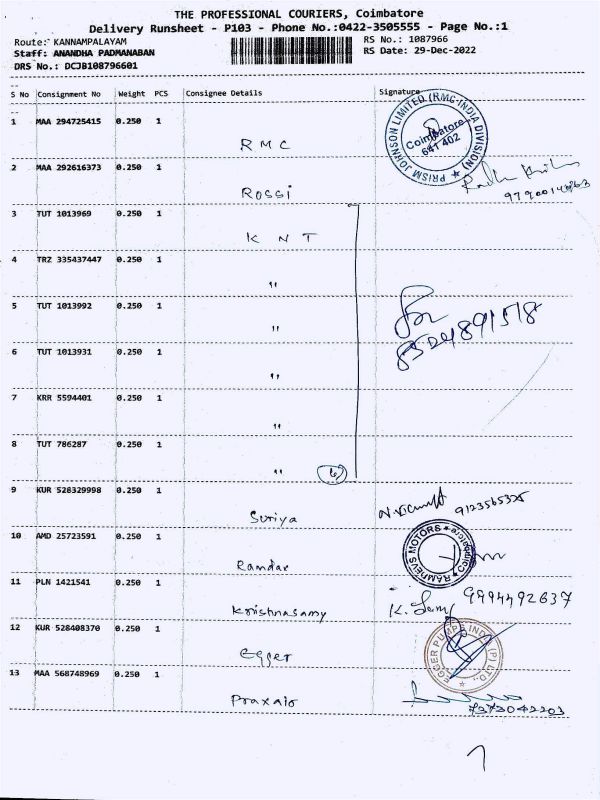 THE PROFESSIONAL COURIERS, Coimbatore
Delivery Runsheet - P103 - Phone No.:0422-3505555 - Page No.:1
Route: KANNAMPALAYAM
RS No.: 1087966
Staff: ANANDHA PADMANABAN
RS Date: 29-Dec-2022
DRS No.: DCJB108796601
S No Consignment No Weight PCS Consignee Details Signature
1 MAA 294725415 0.250 1
RMC
PRISM JOHNSON LIMITED (RMC-INDIA DIVISION)
Coimbatore
641 402
2 MAA 292616373 0.250 1
ROSSI
3 TUT 1013969 0.250 1
KNT
4 TRZ 335437447 0.250 1
"
5 TUT 1013992 0.250 1
"
6 TUT 1013931 0.250 1
"
7 KRR 5594401 0.250 1
"
8 TUT 786287 0.250 1
" 6
9 KUR 528329998 0.250 1
Suriya
9123565325
10 AMD 25723591 0.250 1
Ramdev
RAMDEVS MOTORS
11 PLN 1421541 0.250 1
Krishnasamy
9994492637
12 KUR 528408370 0.250 1
Egger
EGGER PUMPS INDIA (P) LTD.,
13 MAA 568748969 0.250 1
Praxair
7373042203